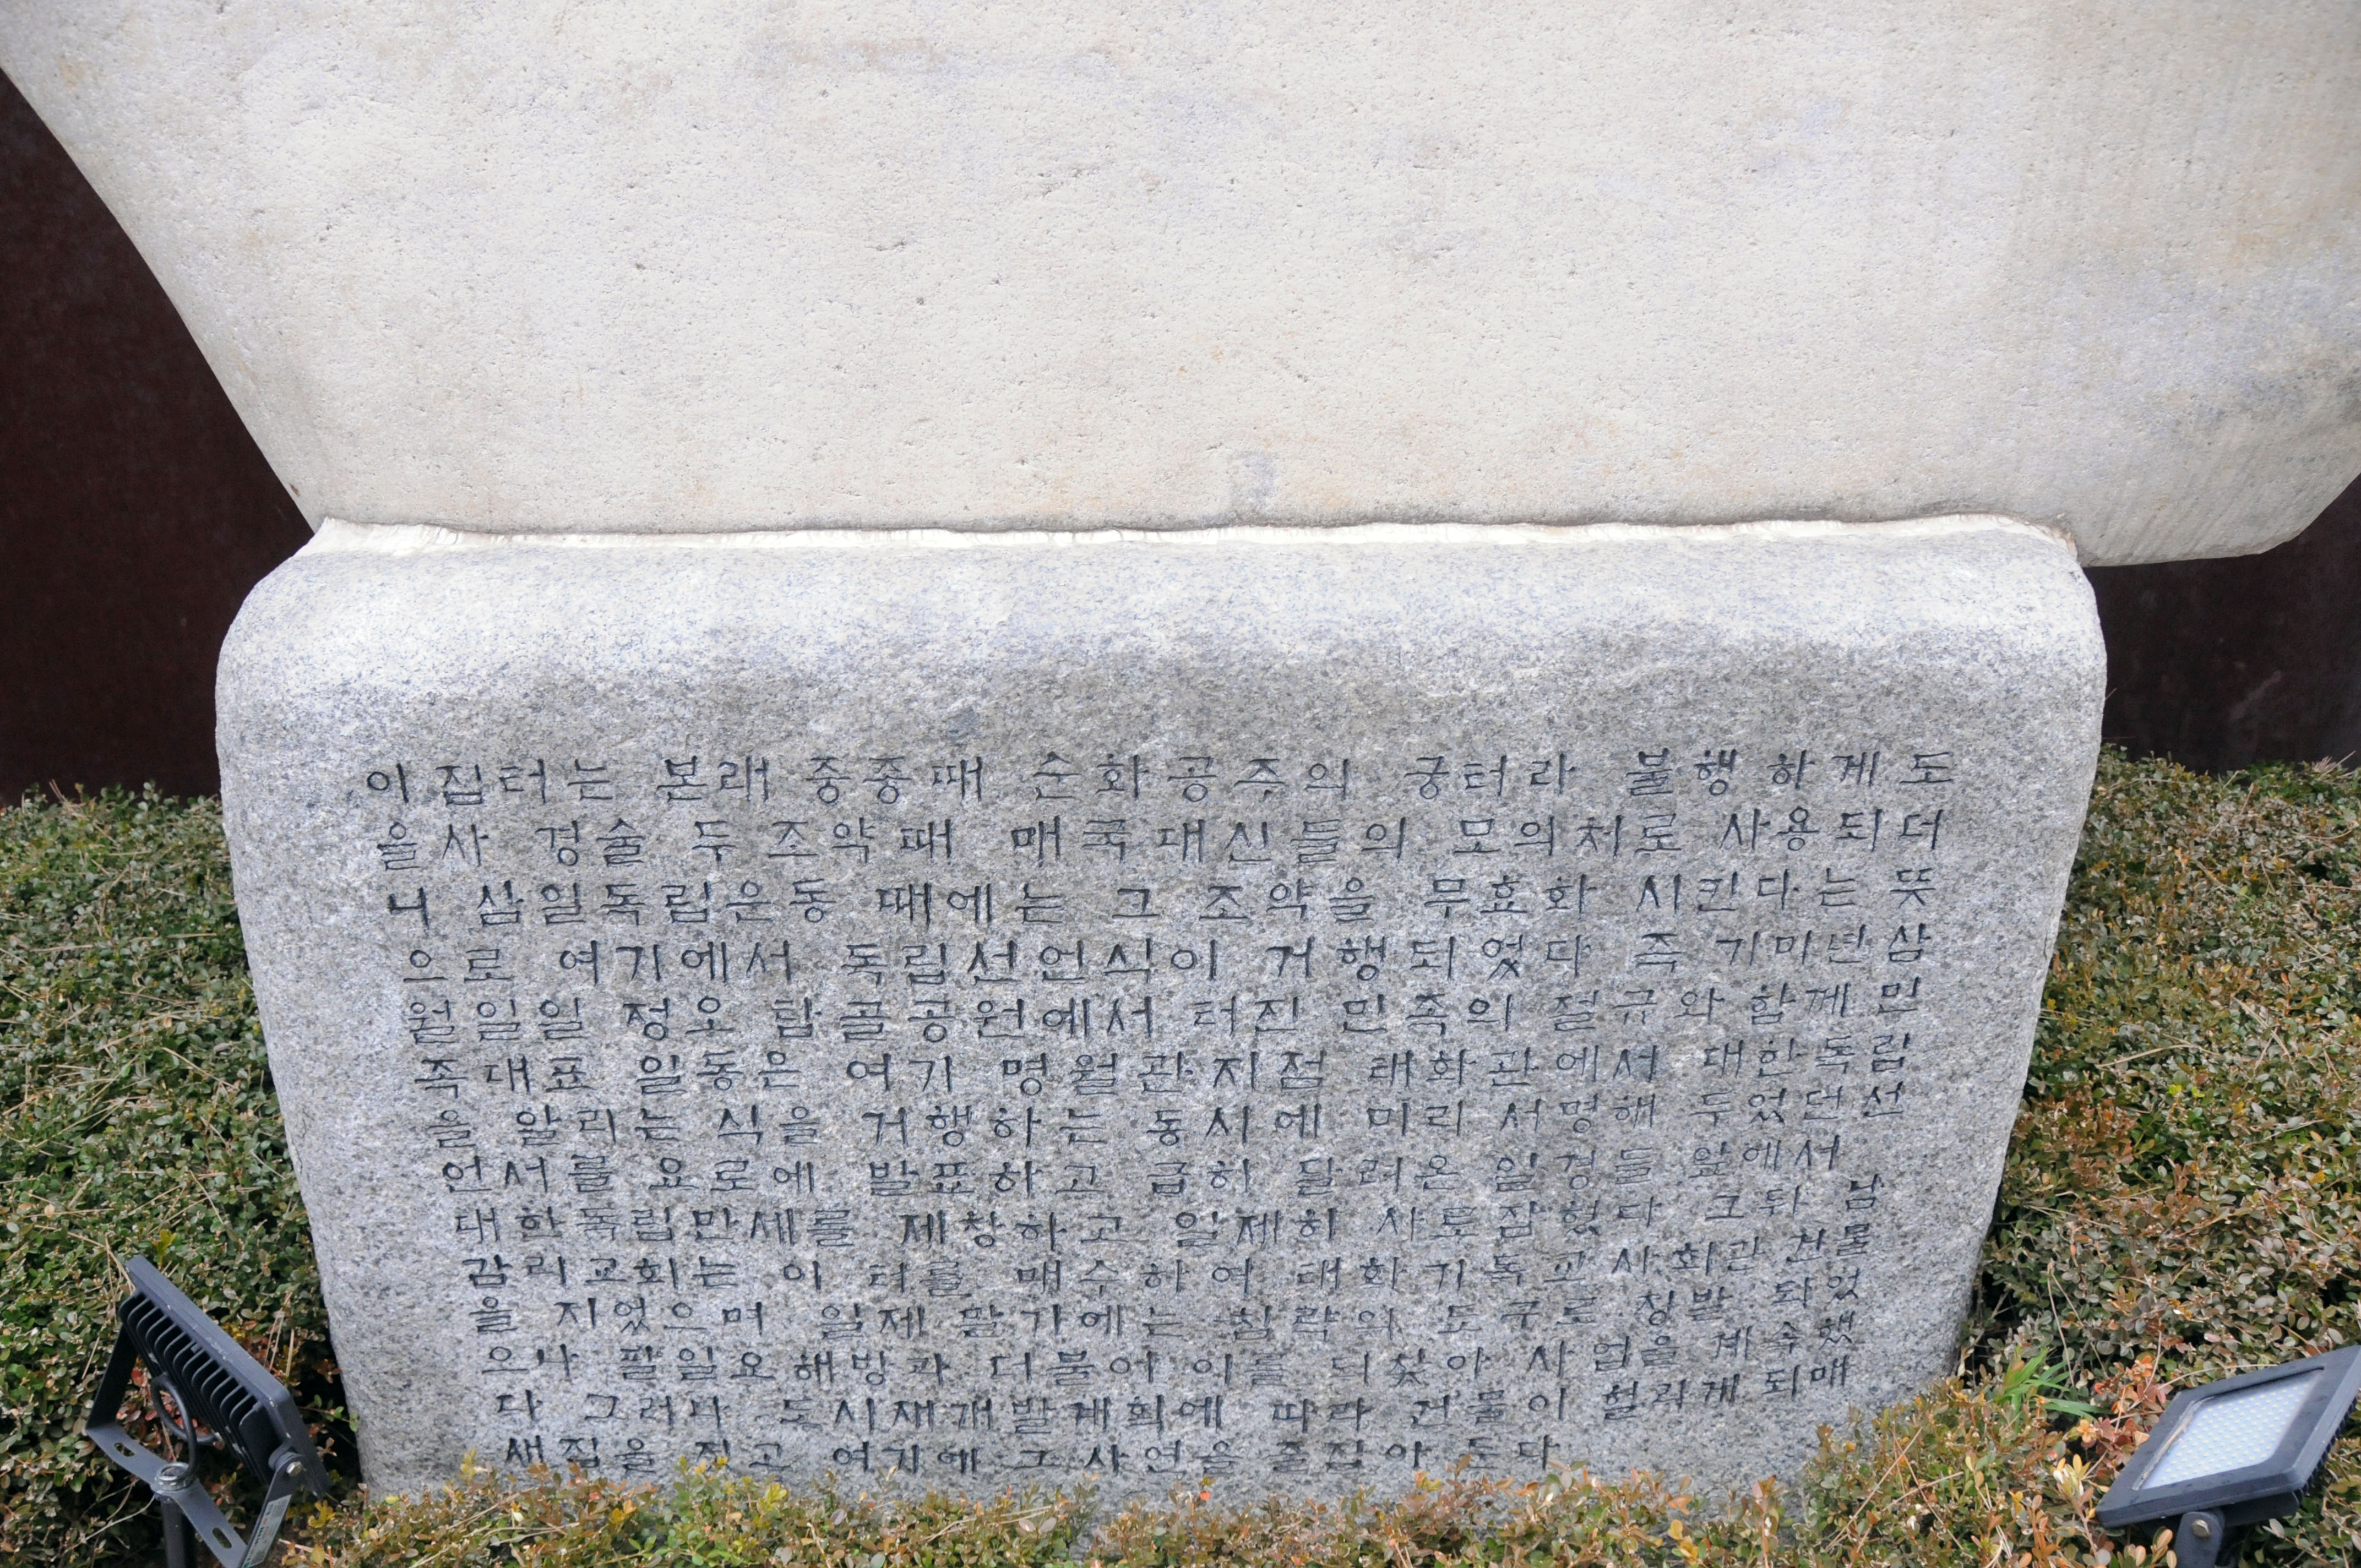 이 집터는 본래 중종때 순화공주의 궁터라 불행하게도
을사 경술 두 조약때 매국대신들의 모의처로 사용되더
니 삼일독립운동 때에는 그 조약을 무효화 시킨다는 뜻
으로 여기에서 독립선언식이 거행되었다 즉 기미년 삼
월일일 정오 탑골공원에서 터진 민족의 절규와 함께 민
족대표 일동은 여기 명월관지점 태화관에서 대한독립
을 알리는 식을 거행하는 동시에 미리 서명해 두었던 선
언서를 요로에 발표하고 급히 달려온 일경들 앞에서
대한독립만세를 제창하고 일제히 사로잡혔다 그뒤 남
감리교회는 이 터를 매수하여 태화기독교사회관 건물
을 지었으며 일제 말기에는 침략의 도구로 징발 되었
으나 팔일오해방과 더불어 이를 되찾아 사업을 계속했
다 그러나 도시재개발계획에 따라 건물이 헐리게 되매
새집을 짓고 여기에 그 사연을 줄잡아 두다